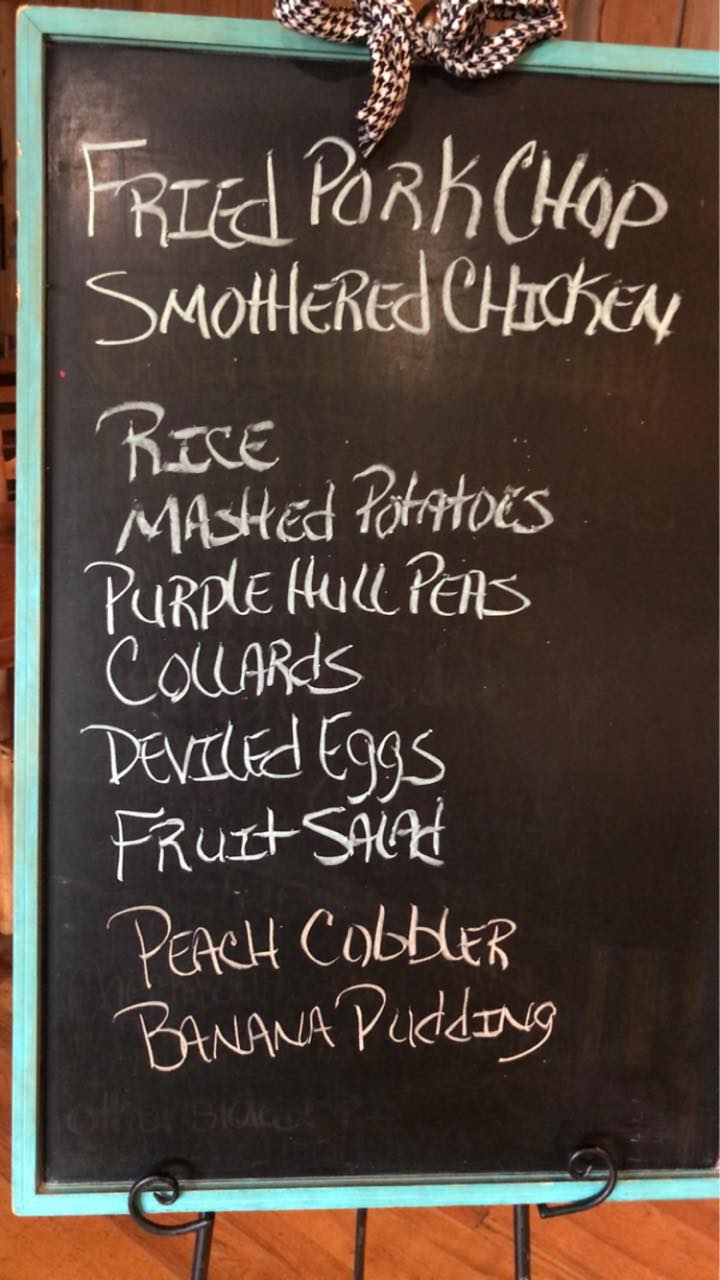 FRIEd PORK CHOP
SMOTHEREd CHICKEN
RICE
MASHEd POtAtOES
PURPLE HULL PEAS
COLLARdS
DEVILEd EggS
FRUIt SALAd
PEACH CObbLER
BANANA PUddINg